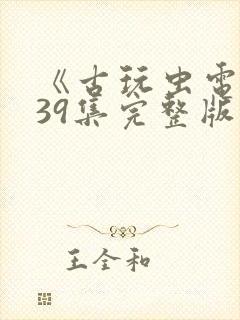 《古玩虫电
39集完整版
王全和